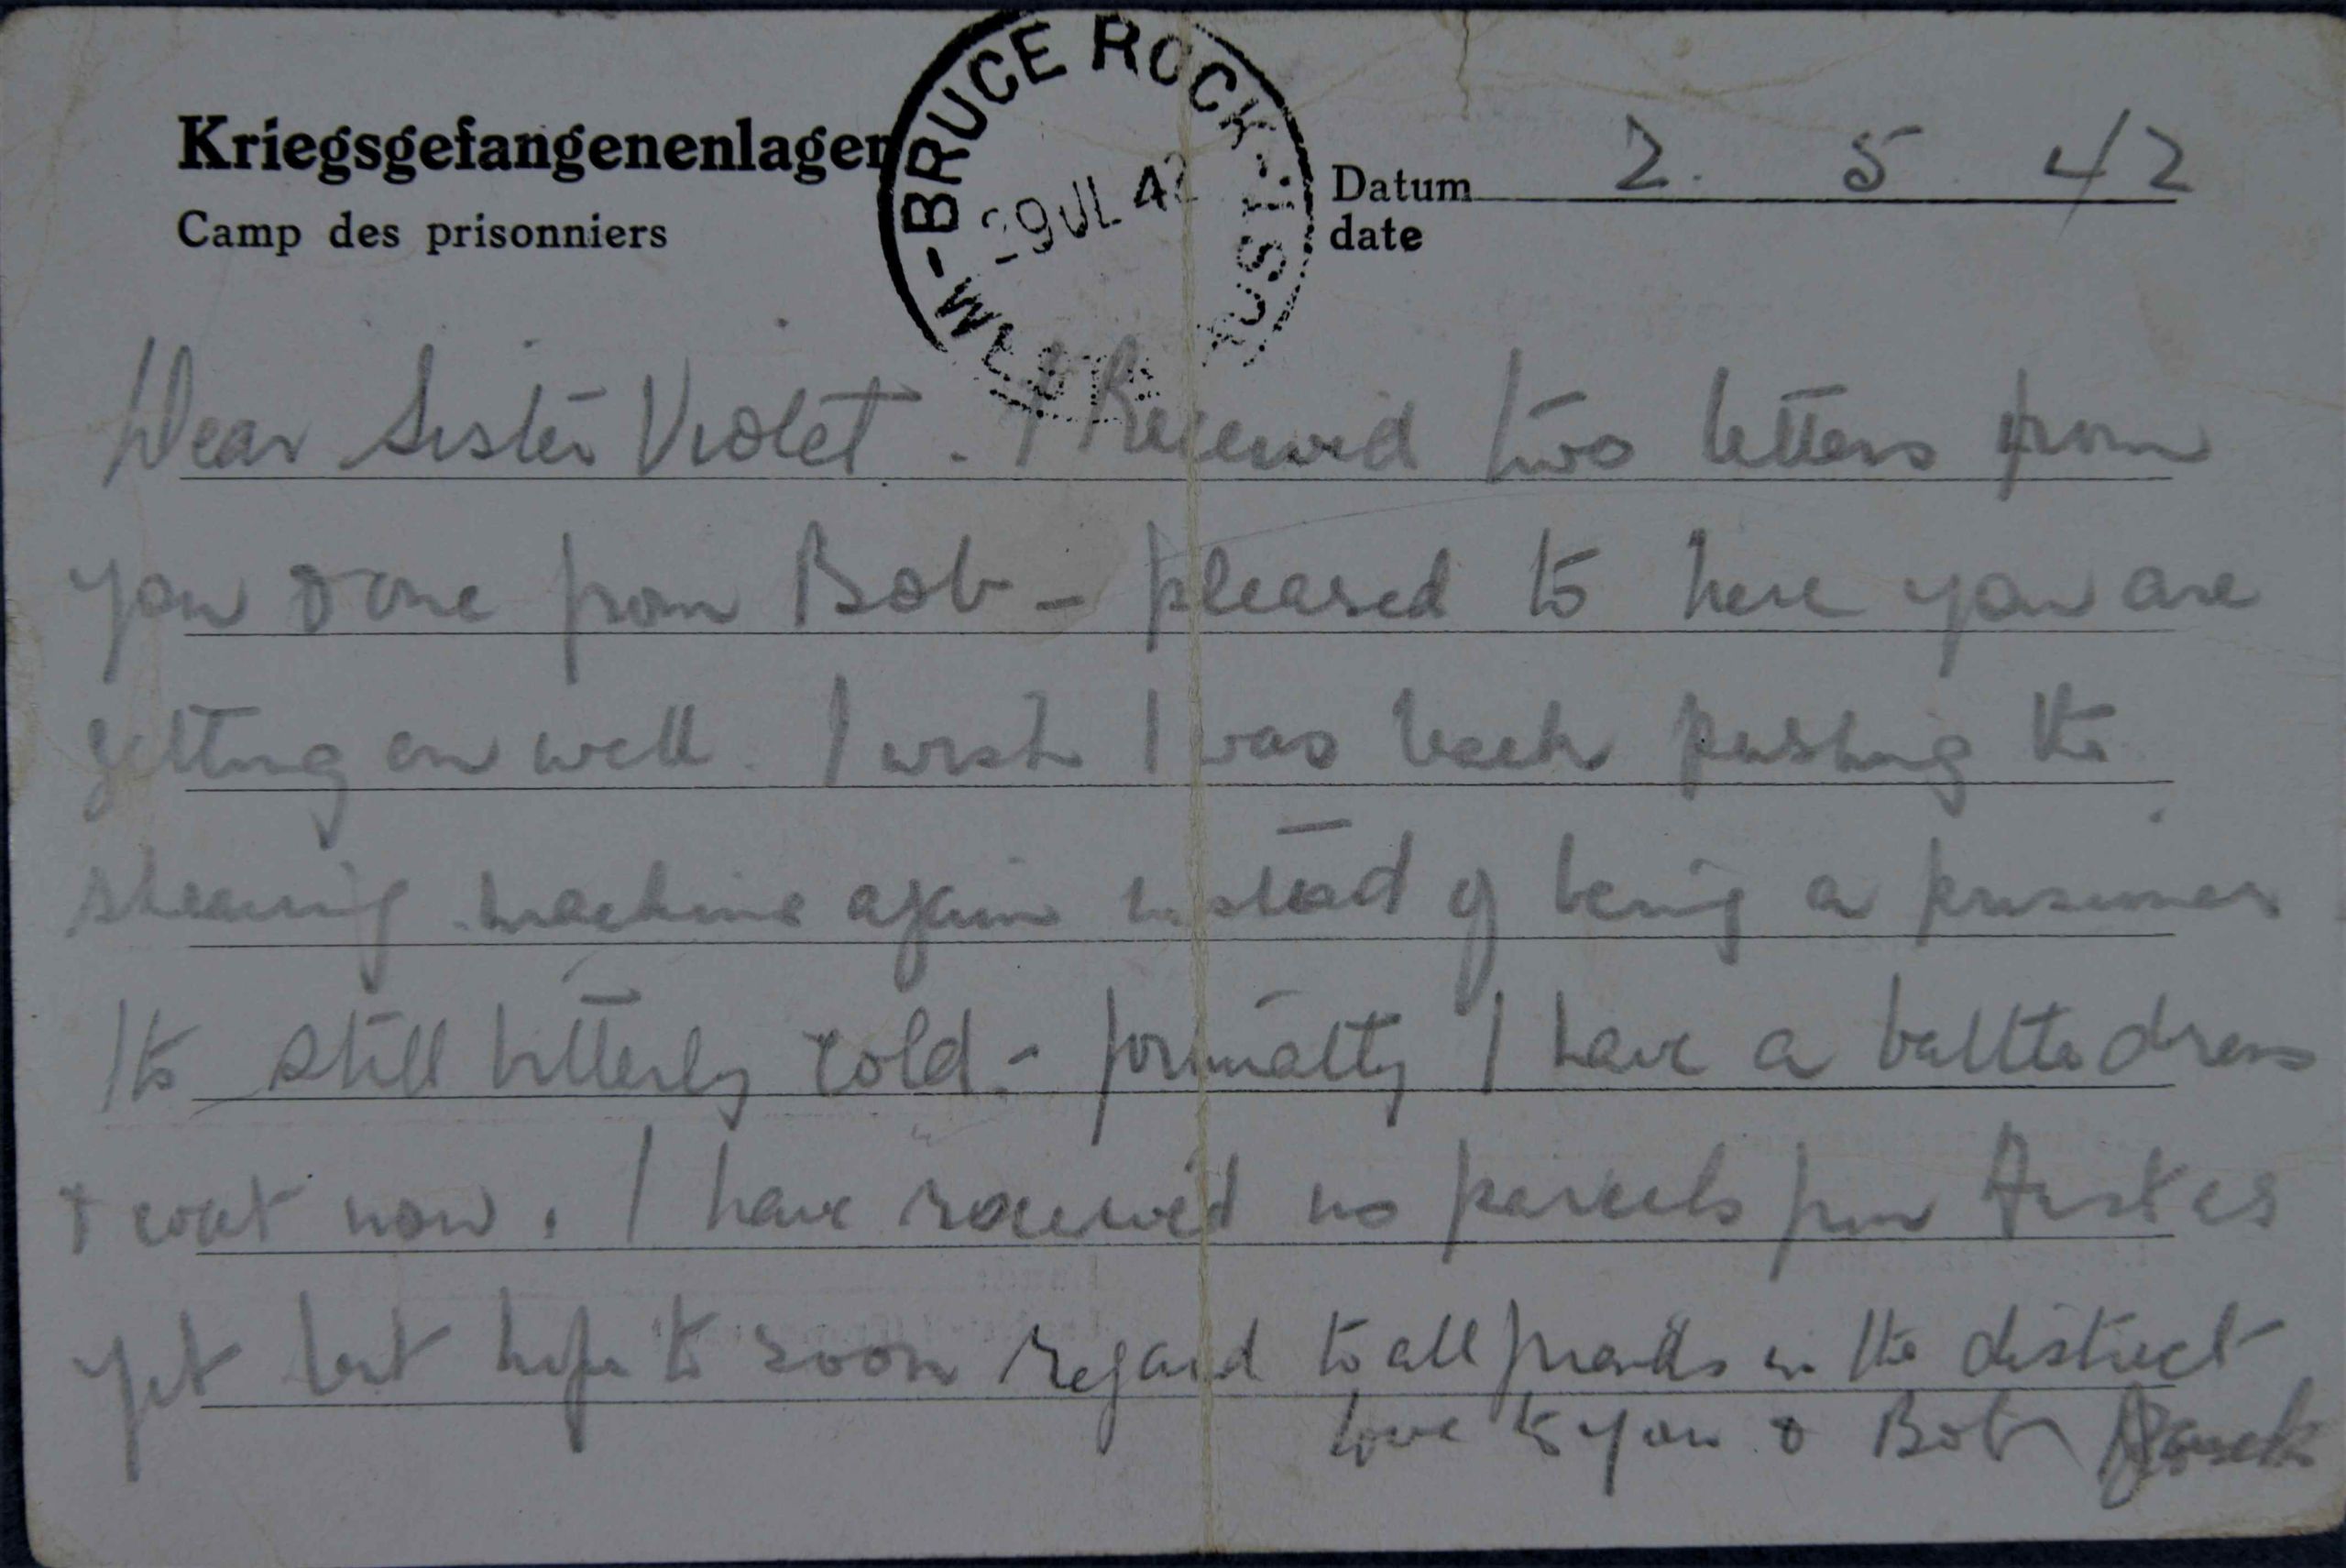 Kriegsgefangenenlager
Camp des prisonniers
BRUCE ROCK
9 JUL 42
Datum 2. 5 42
date
Dear Sister Violet. I Received two letters from
you & one from Bob - pleased to here you are
getting on well. I wish I was back pushing the
shearing machine again instead of being a prisoner
Its still bitterly cold - I have a battle dress
& coat now. I have received no parcels from
yet but hope to soon regard to all friends in the district
love to you & Bob